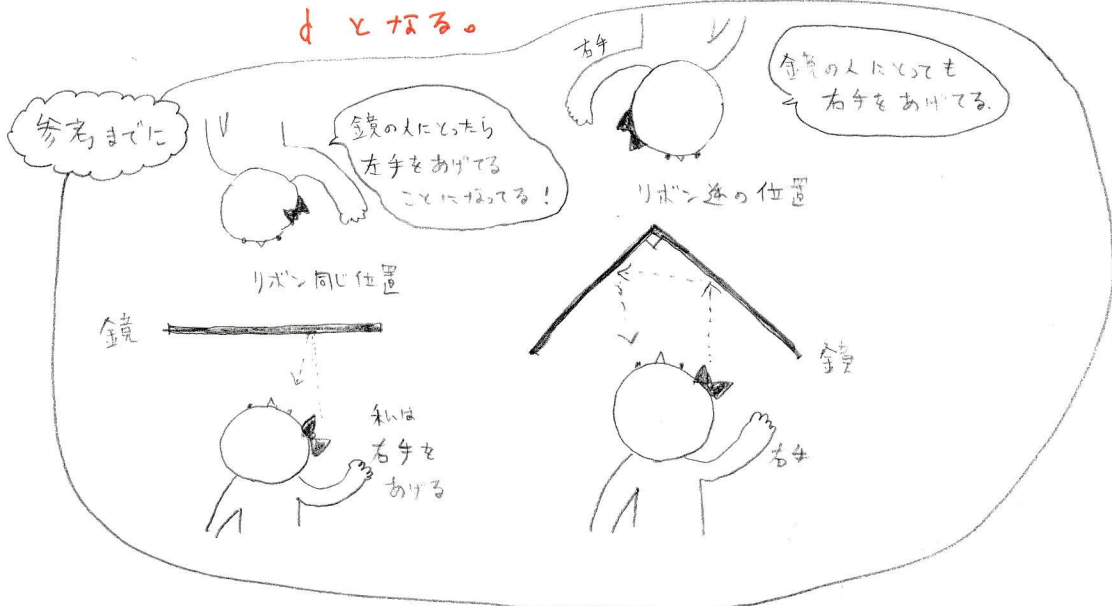 d となる。
参考までに
鏡の人にとったら
左手をあげてる
ことになってる！
リボン同じ位置
鏡
私は
右手を
あげる
右手
鏡の人にとっても
右手をあげてる.
リボン逆の位置
鏡
右手